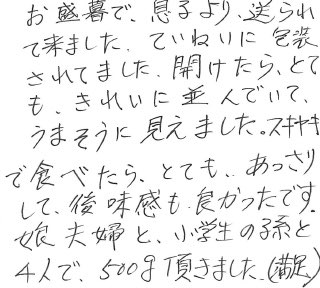 お盛暮で、息子より、送られ
て来ました。ていねいに包装
されてました。開けたら、とて
も、きれいに並んでいて、
うまそうに見えました。スキヤキ
で食べたら、とても、あっさり
して、後味感も良かったです。
娘夫婦と、小学生の孫と
4人で、500g頂きました。(満足)